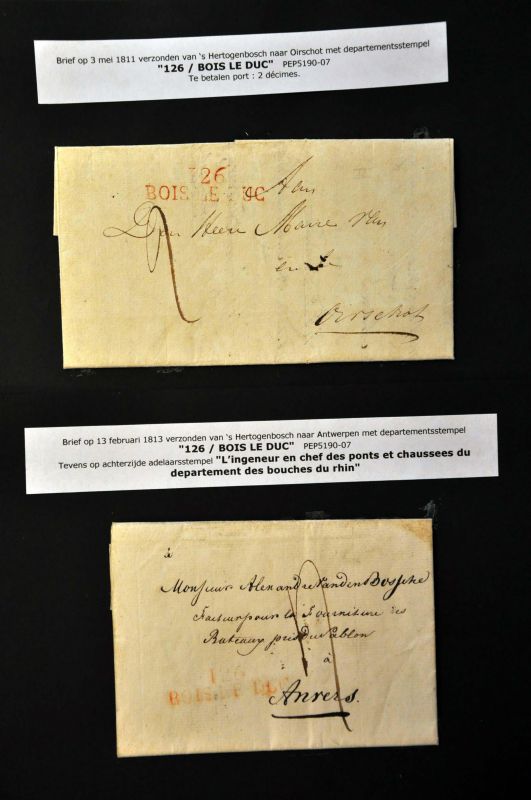 Brief op 3 mei 1811 verzonden van ‘s Hertogenbosch naar Oirschot met departementsstempel
"126 / BOIS LE DUC" PEP5190-07
Te betalen port : 2 décimes.
126
BOIS LE DUC
Aan
Den Heere Maire van
en te
Oirschot
Brief op 13 februari 1813 verzonden van ‘s Hertogenbosch naar Antwerpen met departementsstempel
"126 / BOIS LE DUC" PEP5190-07
Tevens op achterzijde adelaarsstempel "L’ingeneur en chef des ponts et chaussees du
departement des bouches du rhin"
à
Monsieur Alexandre Vanden Bossche
Facteur pour la Fourniture des
Bateaux près du Sablon
à
126
BOIS LE DUC
Anvers.